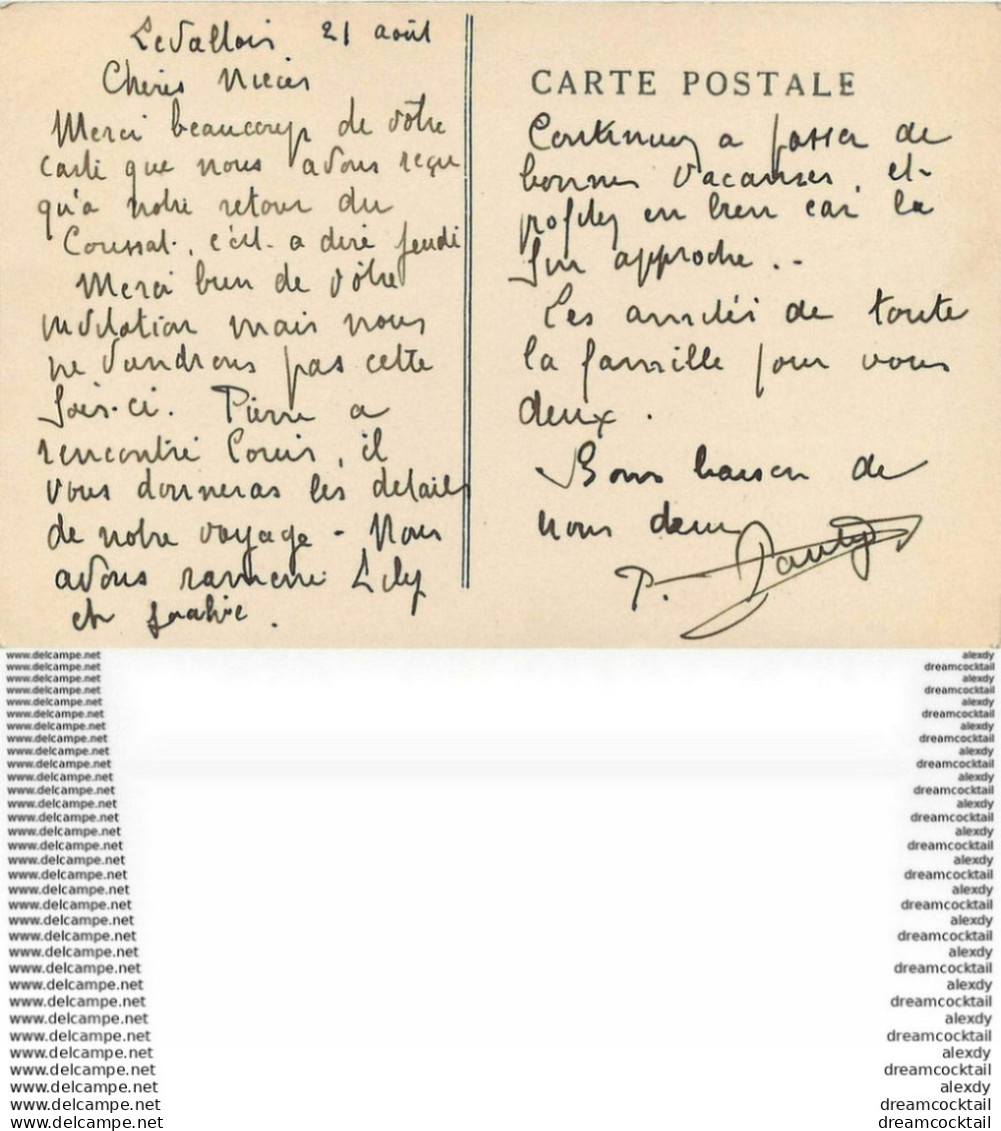 Levallois 21 août
Chères Nieces
Merci beaucoup de vôtre
carte que nous avons reçu
qu'a notre retour du
c'est-a dire jeudi
Merci bien de vôtre
invitation mais nous
ne viendrons pas cette
fois-ci. Pierre a
rencontré il
vous donneras les details
de notre voyage - Nous
avons ramené Lily
et
CARTE POSTALE
Continuez a passer de
bonnes vacances, et
profitez en bien car la
fin approche..
Les amitiés de toute
la famille pour vous
deux.
Bons baisers de
nous deux
P.
www.delcampe.net alexdy
www.delcampe.net dreamcocktail
www.delcampe.net alexdy
www.delcampe.net dreamcocktail
www.delcampe.net alexdy
www.delcampe.net dreamcocktail
www.delcampe.net alexdy
www.delcampe.net dreamcocktail
www.delcampe.net alexdy
www.delcampe.net dreamcocktail
www.delcampe.net alexdy
www.delcampe.net dreamcocktail
www.delcampe.net alexdy
www.delcampe.net dreamcocktail
www.delcampe.net alexdy
www.delcampe.net dreamcocktail
www.delcampe.net alexdy
www.delcampe.net dreamcocktail
www.delcampe.net alexdy
www.delcampe.net dreamcocktail
www.delcampe.net alexdy
www.delcampe.net dreamcocktail
www.delcampe.net alexdy
www.delcampe.net dreamcocktail
www.delcampe.net alexdy
www.delcampe.net dreamcocktail
www.delcampe.net alexdy
www.delcampe.net dreamcocktail
www.delcampe.net alexdy
www.delcampe.net dreamcocktail
www.delcampe.net alexdy
www.delcampe.net dreamcocktail
www.delcampe.net dreamcocktail